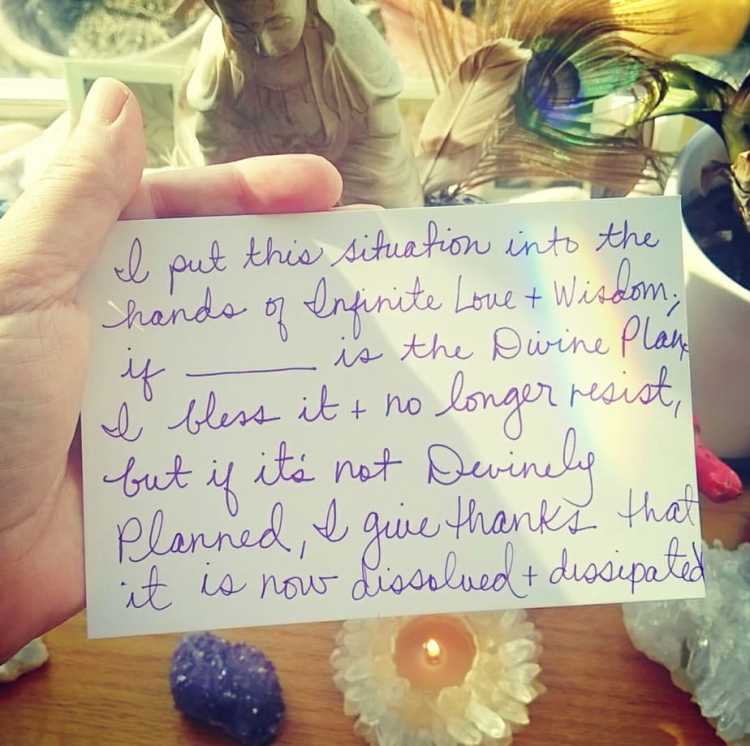 I put this situation into the
hands of Infinite Love + Wisdom;
if ______ is the Divine Plan,
I bless it + no longer resist,
but if it's not Devinely
Planned, I give thanks that
it is now dissolved + dissipated